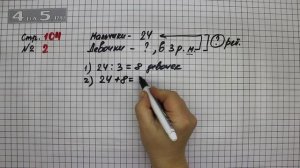 4 на 5
Стр. 104
№ 2
Мальчики - 24
Девочки - ?, в 3 р. м.
? реб.
1) 24 : 3 = 8 девочек
2) 24 + 8 =